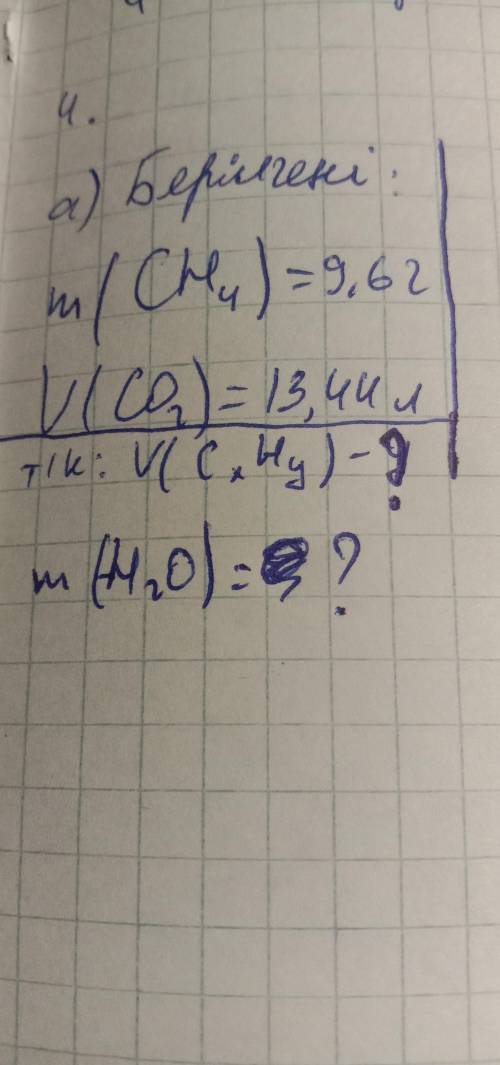 4.
а) Берілгені:
m(CH₄)=9,6г
V(CO₂)=13,44л
т/к: V(CₓHᵧ)-?
m(H₂O)= ?